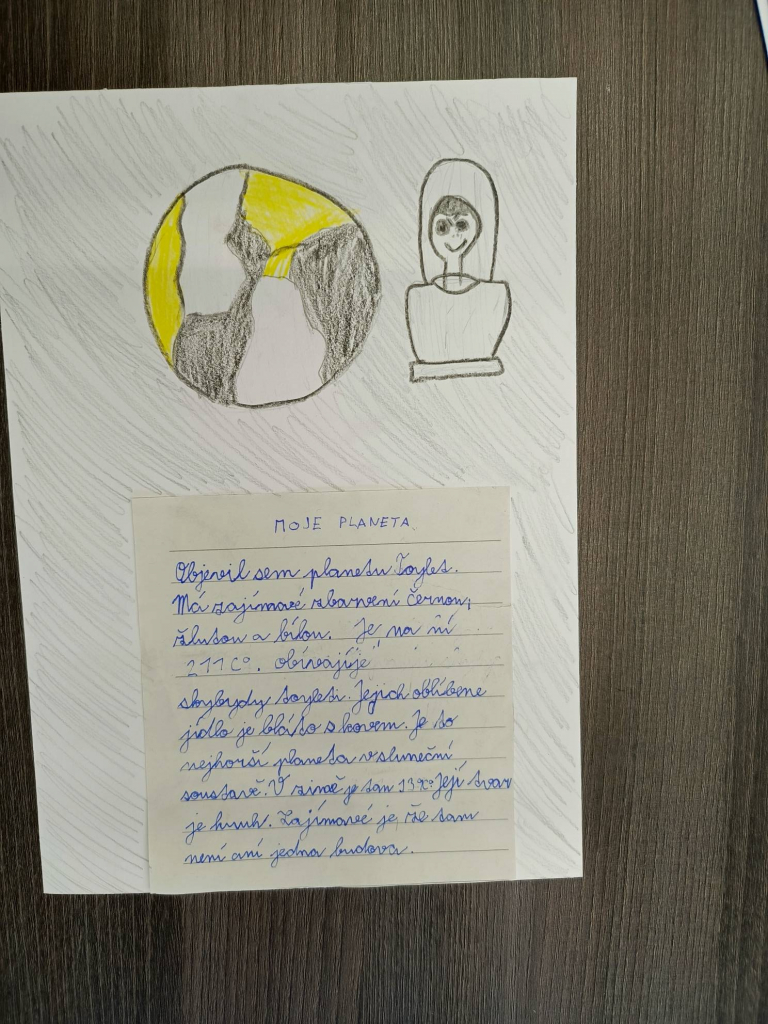 MOJE PLANETA
Objevil sem planetu Toylet.
Má zajímavé zbarvení černou,
žlutou a bílou. Je na ní
211C°. obívajíje
skybydy toyleti. Jejich oblíbene
jídlo je bláto s kovem. Je to
nejhorší planeta v sluneční
soustavě. V zimě je tam Její tvar
je kruh. Zajímavé je, že tam
není ani jedna budova.